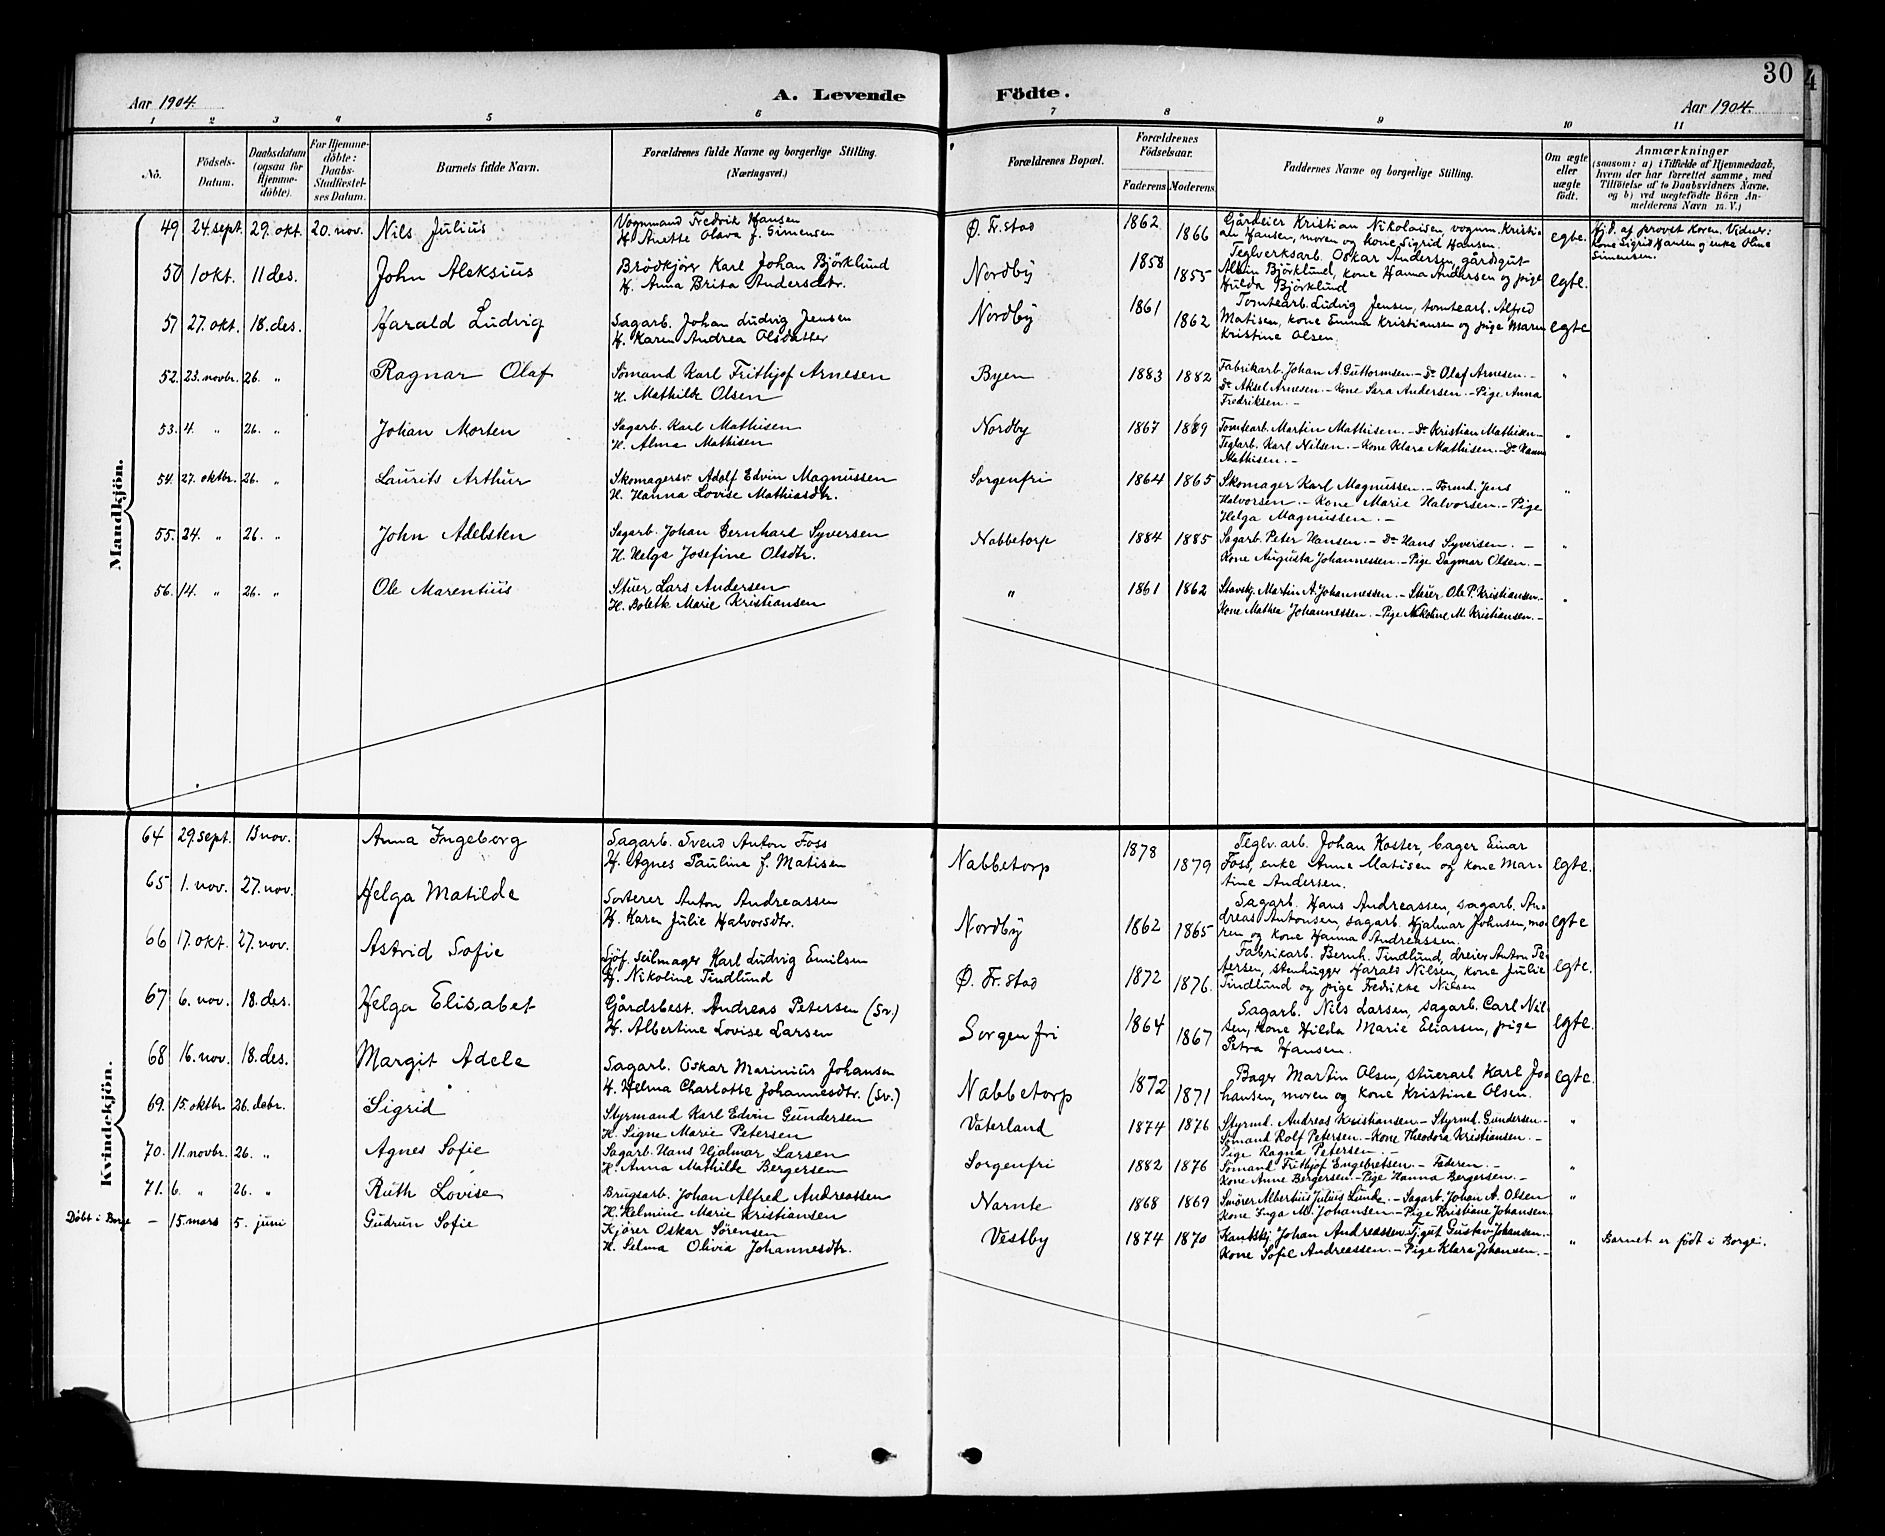 30
Aar 1904.
A. Levende Födte.
Aar 1904.
1 2 3 4 5 6 7 8 9 10 11
No.
Födsels-
Datum.
Daabsdatum
(ogsaa for
Hjemme-
döbte).
For Hjemme-
döbte:
Daabs-
Stadfæstel-
ses Datum.
Barnets fulde Navn.
Forældrenes fulde Navne og borgerlige Stilling.
(Næringsvei.)
Forældrenes Bopæl.
Forældrenes
Födselsaar.
Faderens Moderens
Faddernes Navne og borgerlige Stilling.
Om ægte
eller
uægte
födt.
Anmærkninger
(saasom: a) i Tilfælde af Hjemmedaab,
hvem der har forrettet samme, med
Tilföielse af to Daabsvidners Navne,
og b) ved uægtefödte Börn An-
melderens Navn m. V.)
Mandkjön.
49 24 sept. 29. okt. 20. nov. Nils Julius
Vognmand Fredrik Hansen
H. Anette Olava f. Simensen
Ø. Fr.stad 1862 1866
Gårdeier Kristian Nikolaisen, vognm. Kristi-
an Hansen, moren og kone Sigrid Hansen.
egte.
Hj.d. af provst Koren. Vidner:
kone Sigrid Hansen og enke Oline
Simensen.
50 1 okt. 11 des. John Aleksius
Brödkjörer Karl Johan Björklund
H. Anna Brita Andersdtr.
Nordby 1858 1855
Teglverksarb. Oskar Andersen, gårdsgut
Alvin Björklund, kone Hanna Andersen og pige
Hulda Björklund
egte.
51 27. okt. 18. des. Harald Ludvig
Sagarb. Johan Ludvig Jensen
H. Karen Andrea Olsdatter
Nordby 1861 1862
Tomtearb. Ludvig Jensen, tomtearb. Alfred
Matisen, kone Emma Kristiansen og pige Maren
Kristine Olsen.
egte
52. 23. novbr. 26. „ Ragnar Olaf
Sömand Karl Frithjof Arnesen
H. Mathilde Olsen
Byen 1883 1882
Fabrikarb. Johan A. Guttormsen – Do Olaf Arnesen. –
Do Aksel Arnesen – Kone Sara Andersen. – Pige Anna
Fredriksen. –
„
53. 4. „ 26. „ Johan Morten
Sagarb. Karl Mathisen
H. Alma Mathisen
Nordby 1867 1869
Tomtearb. Martin Mathisen. – Do Kristian Mathisen –
Teglarb. Karl Nilsen. – Kone Klara Mathisen. – Do Hanna
Mathisen. –
„
54. 27. oktbr. 26. „ Laurits Arthur
Skomagersv. Adolf Edvin Magnussen
H. Hanna Lovise Mathiasdtr.
Sorgenfri 1864 1865
Skomager Karl Magnussen. – Formd. Jens
Halvorsen. – Kone Marie Halvorsen. – Pige
Helga Magnussen. –
„
55. 24. „ 26. „ John Adelsten
Sagarb. Johan Bernhard Syversen
H. Helga Josefine Olsdtr.
Nabbetorp 1884 1885
Sagarb. Peter Hansen. – Do Hans Syversen. –
Kone Augusta Johannessen. – Pige Dagmar Olsen. –
„
56. 14. „ 26. „ Ole Marentius
Stuer Lars Andersen
H. Bolette Marie Kristiansen
„ 1861 1862
Stavskj. Martin A. Johannessen. – Stuer Ole P. Kristiansen. –
Kone Mathea Johannessen. – Pige Nikoline M. Kristiansen. –
„
Kvindekjön.
64 29. sept. 13 nov. Anna Ingeborg
Sagarb. Svend Anton Foss
H. Agnes Pauline f. Matisen
Nabbetorp 1878 1879
Teglv.arb. Johan Koster, bager Einar
Foss, enke Anne Matisen og kone Mar-
tine Andersen.
egte.
65 1. nov. 27. nov. Helga Matilde
Sorterer Anton Andreassen
H. Karen Julie Halvorsdtr.
Nordby 1862 1865
Sagarb. Hans Andreassen, sagarb. An-
dreas Antonsen, sagarb. Hjalmar Johnsen, mo-
ren og kone Hanna Andreassen.
egte
66 17. okt. 27. nov. Astrid Sofie
Sjöf. Seilmager Karl Ludvig Emilsen
H. Nikoline Tindlund
Ø. Fr.stad 1872 1876.
Fabrikarb. Bernh. Tindlund, dreier Anton Pe-
tersen, stenhugger Harald Nilsen, kone Julie
Tindlund og pige Fredrikke Nilsen
egte.
67 6. nov. 18. des. Helga Elisabet
Gårdsbest. Andreas Petersen (Sv.)
H. Albertine Lovise Larsen
Sorgenfri 1864 1867
Sagarb. Nils Larsen, sagarb. Carl Niel-
sen, kone Hilda Marie Eliassen, pige
Petra Hansen.
egte.
68 16. nov. 18. des. Margit Adele
Sagarb. Oskar Marinius Johansen
H. Helma Charlotte Johannesdtr. (Sv.)
Nabbetorp 1872 1871
Bager Martin Olsen, stuerarb Karl Jo-
hansen, moren og kone Kristine Olsen.
egte.
69. 15. oktbr. 26. debr. Sigrid
Styrmand Karl Edvin Gundersen
H. Signe Marie Petersen
Vaterland 1874 1876
Styrmd. Andreas Kristiansen – Styrmd. Gundersen –
Sömand Rolf Petersen. – Kone Theodora Kristiansen. –
Pige Ragna Petersen. –
„
70. 11. novbr. 26. „ Agnes Sofie
Sagarb. Hans Hjalmar Larsen
H. Anna Mathilde Bergersen
Sorgenfri 1882 1876
Sömand Frithjof Engebretsen. – Faderen. –
Kone Anne Bergersen. – Pige Hanna Bergersen. –
„
71. 6. „ 26. „ Ruth Lovise
Brugsarb. Johan Alfred Andreassen
H. Helmine Marie Kristiansen
Narnte 1868 1869
Smörer Albertius Julius Lunde. – Sagarb. Johan A. Olsen
Kone Inga M. Johansen – Pige Kristiane Johansen –
„
Döbt i Borge – 15. mars 5. juni Gudrun Sofie
Kjörer Oskar Sörensen
H. Selma Olivia Johannesdtr.
Vestby 1874 1870
Johan Andreassen Tj.gut Gustav Johansen. –
Kone Sofie Andreassen. – Pige Klara Johansen. –
„
Barnet er födt i Borge.